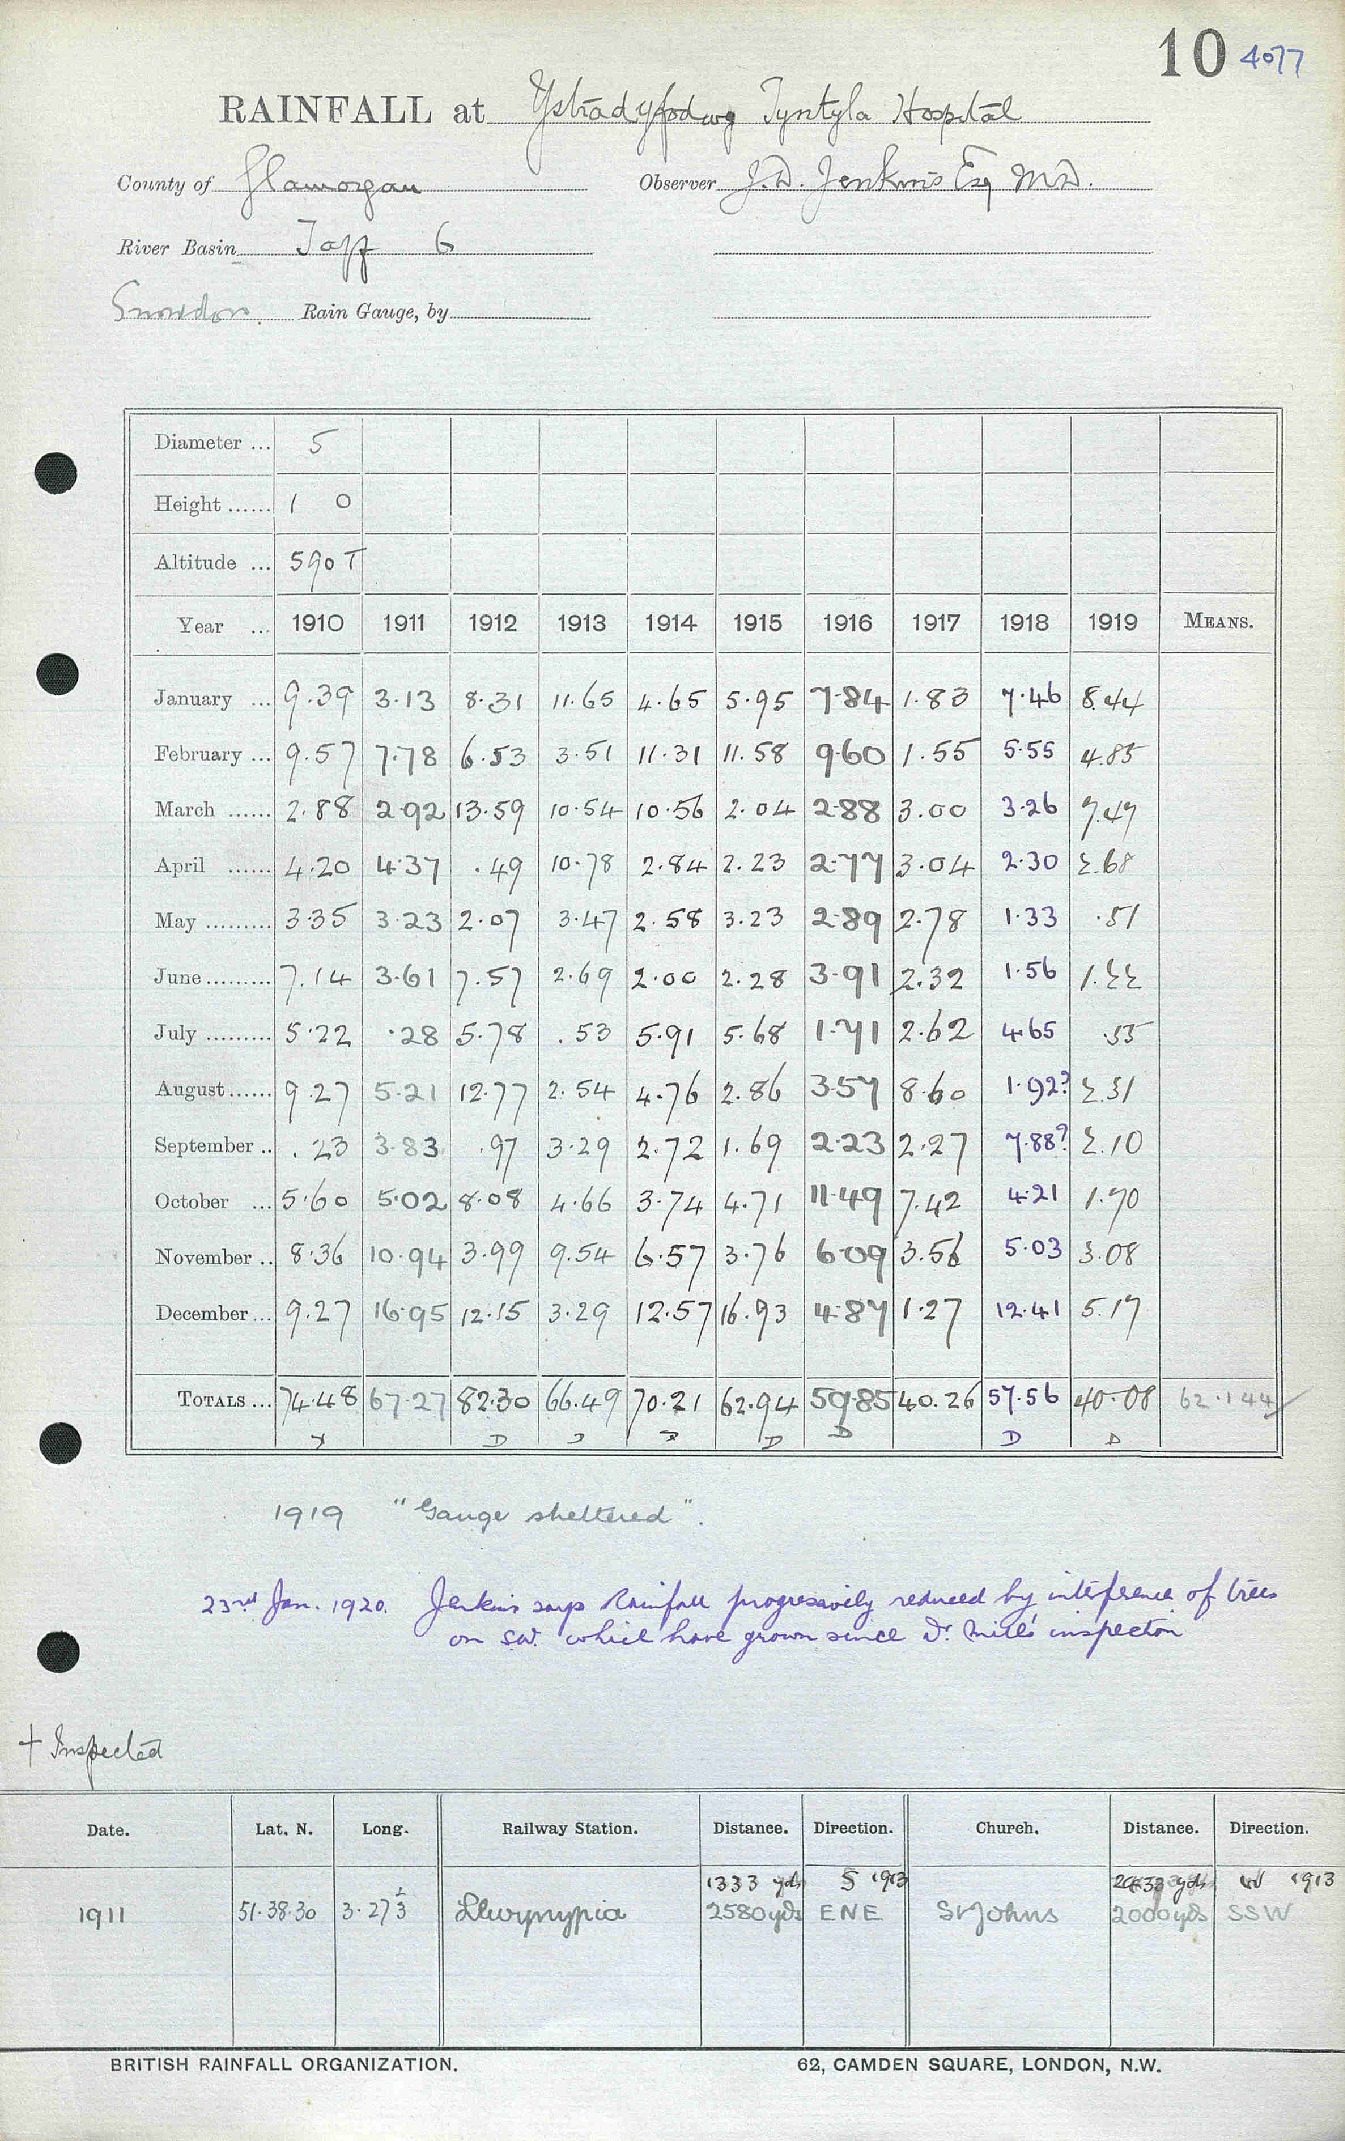 10 4077
RAINFALL at Ystradyfodwg Tyntyla Hospital
County of Glamorgan Observer J.D. Jenkins Esq M.D.
River Basin Taff 6
Snowdon Rain Gauge, by
Diameter ... 5
Height ...... 1 0
Altitude ... 590 T
Year ... 1910 1911 1912 1913 1914 1915 1916 1917 1918 1919 MEANS.
January ... 9.39 3.13 8.31 11.65 4.65 5.95 7.84 1.83 7.46 8.44
February ... 9.57 7.78 6.53 3.51 11.31 11.58 9.60 1.55 5.55 4.85
March ...... 2.88 2.92 13.59 10.54 10.56 2.04 2.88 3.00 3.26 7.47
April ...... 4.20 4.37 .49 10.78 2.84 2.23 2.77 3.04 2.30 2.68
May ......... 3.35 3.23 2.07 3.47 2.58 3.23 2.89 2.78 1.33 .51
June ......... 7.14 3.61 7.57 2.69 2.00 2.28 3.91 2.32 1.56 1.22
July ......... 5.22 .28 5.78 .53 5.91 5.68 1.71 2.62 4.65 .55
August ...... 9.27 5.21 12.77 2.54 4.76 2.86 3.57 8.60 1.92? 2.31
September .. .23 3.83 .97 3.29 2.72 1.69 2.23 2.27 7.88? 2.10
October ... 5.60 5.02 8.08 4.66 3.74 4.71 11.49 7.42 4.21 1.70
November .. 8.36 10.94 3.99 9.54 6.57 3.76 6.09 3.56 5.03 3.08
December ... 9.27 16.95 12.15 3.29 12.57 16.93 4.87 1.27 12.41 5.17
TOTALS ... 74.48 67.27 82.30 66.49 70.21 62.94 59.85 40.26 57.56 40.08 62.144
D D D D D
1919 "Gauge sheltered".
23rd Jan. 1920. Jenkins says Rainfall progressively reduced by interference of trees
on SW. which have grown since Dr. Mill's inspection
+ Inspected
Date. Lat. N. Long. Railway Station. Distance. Direction. Church. Distance. Direction.
1333 yds S 1913 yds W 1913
1911 51.38.30 3.27 Llwynypia 2580 yds ENE St Johns 2000 yds SSW
BRITISH RAINFALL ORGANIZATION. 62, CAMDEN SQUARE, LONDON, N.W.